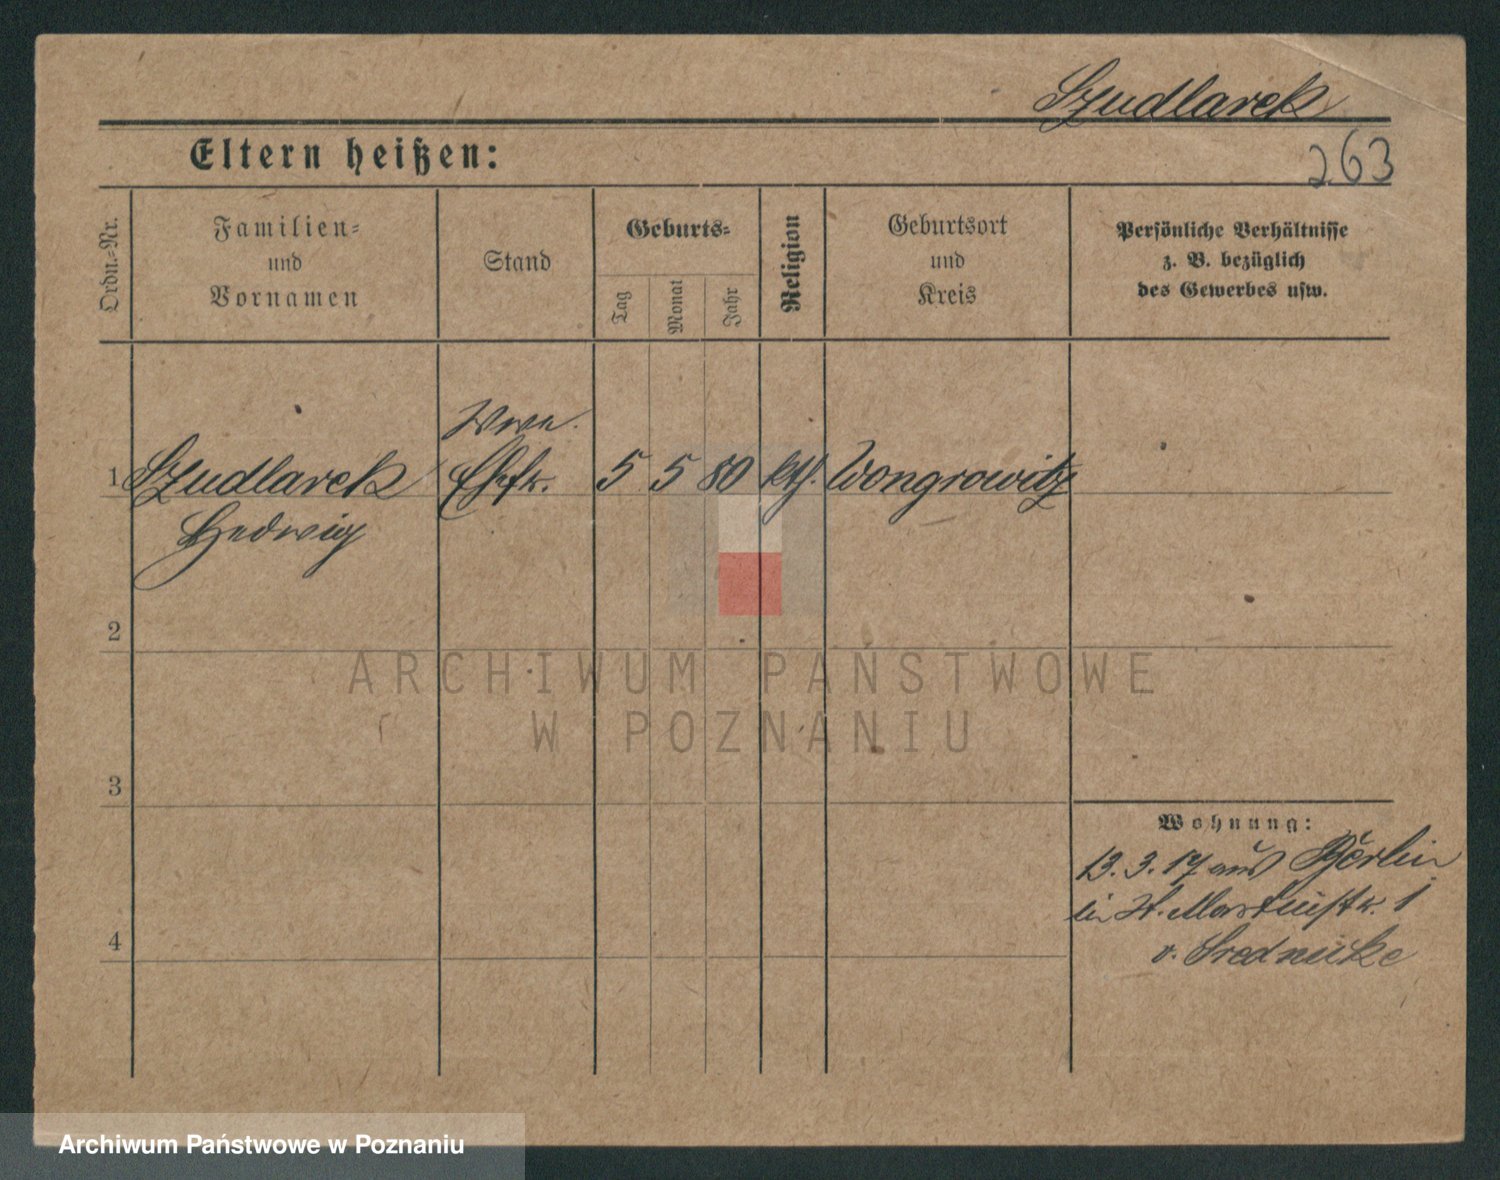 Szudlarek
Eltern heißen:
263
Ordn.-Nr.
Familien-
und
Vornamen
Stand
Geburts-
Tag
Monat
Jahr
Religion
Geburtsort
und
Kreis
Persönliche Verhältnisse
z. B. bezüglich
des Gewerbes usw.
Wwe.
1 Szudlarek Ehefr. 5 5 80 kth. Wongrowitz
Hedwig
2
ARCHIWUM PAŃSTWOWE
W POZNANIU
3
Wohnung:
13. 3. 17 aus Berlin
in St. Martinstr. 1
v. Srednicke
4
Archiwum Państwowe w Poznaniu